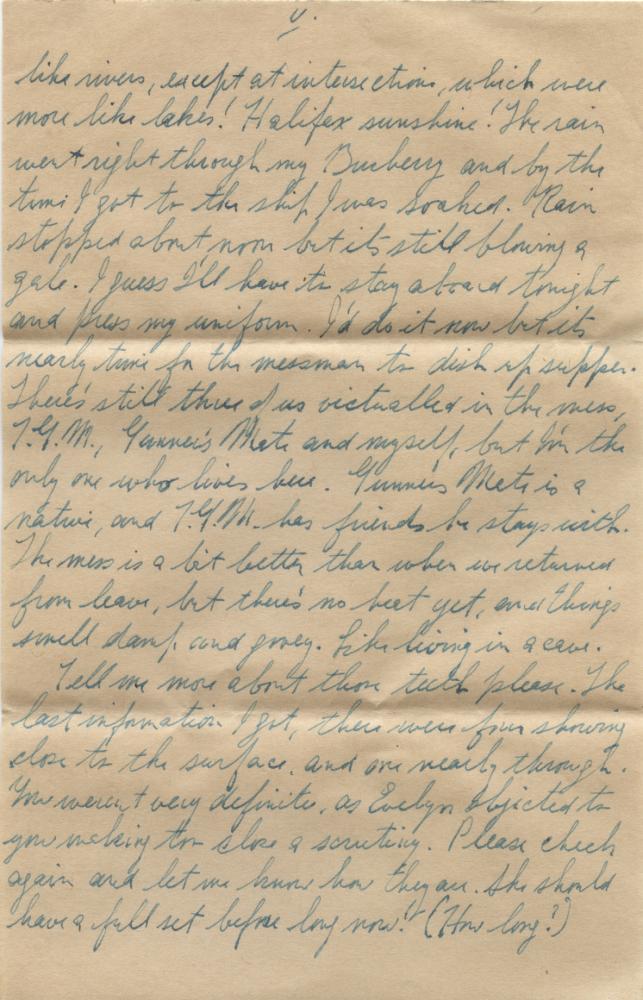 4.
like rivers, except at intersections, which were
more like lakes! Halifax sunshine! The rain
went right through my Burberry and by the
time I got to the ship I was soaked. Rain
stopped about noon but its still blowing a
gale. I guess I'll have to stay aboard tonight
and press my uniform. I'd do it now but its
nearly time for the messman to dish up supper.
There's still three of us victualled in the mess,
T.G.M., Gunner's Mate and myself, but I'm the
only one who lives here. Gunner's Mate is a
native, and T.G.M. has friends he stays with.
The mess is a bit better than when we returned
from leave, but there's no heat yet, and things
smell damp and gooey. Like living in a cave.
Tell me more about those teeth please. The
last information I got, there were four showing
close to the surface, and one nearly through.
You weren't very definite, as Evelyn objected to
you making too close a scrutiny. Please check
again and let me know how they are. She should
have a full set before long now! (How long?)